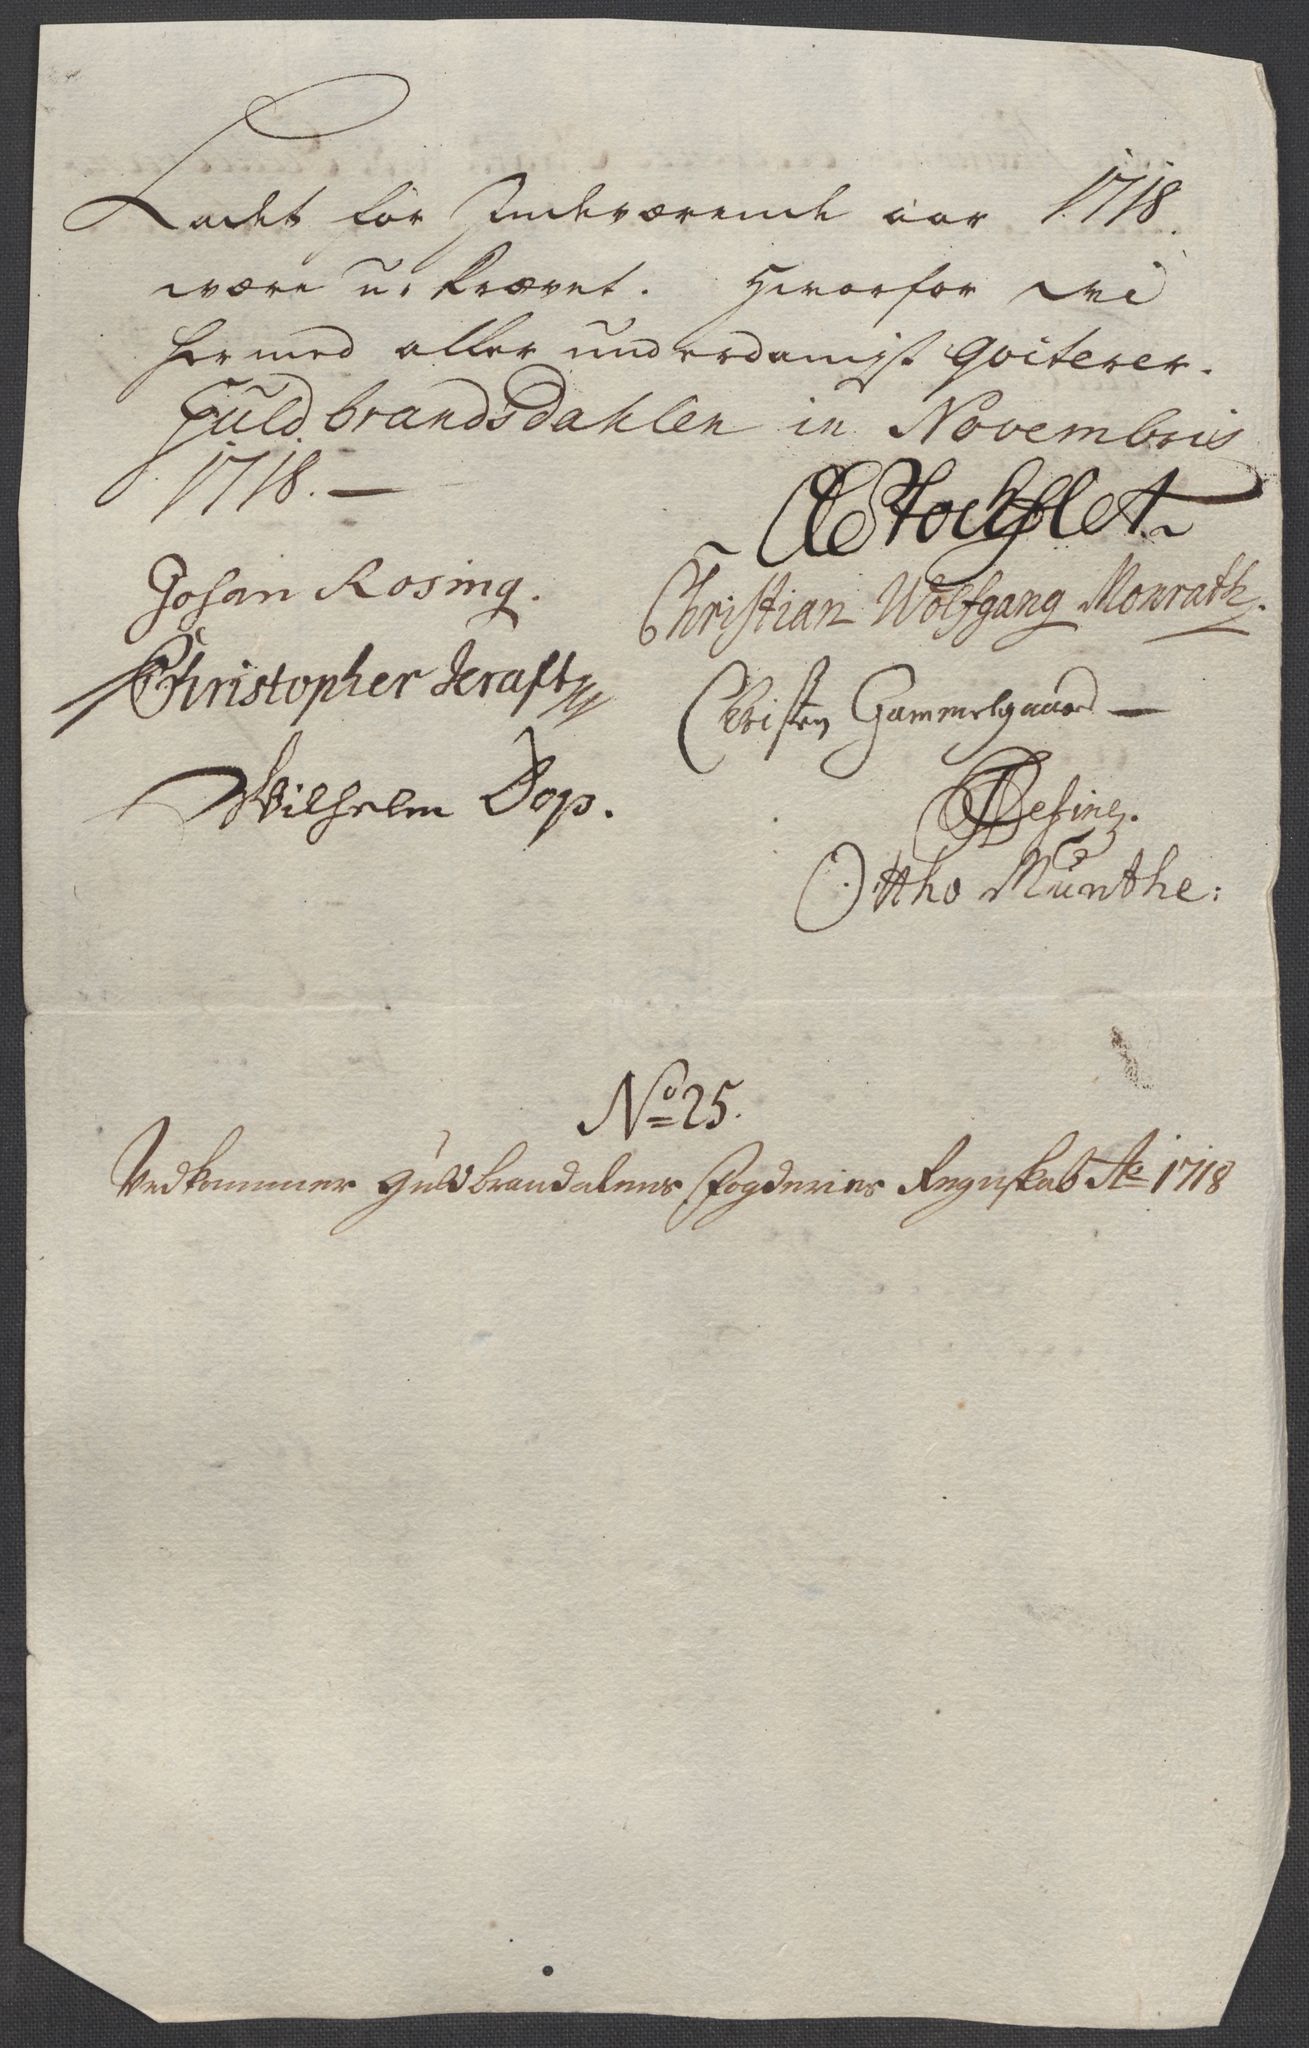 Ladet for Indeværende aar 1718.
være u-krævet. Hvorfor vi
hermed aller underdanigst qviterer.
Guldbrandsdahlen in Novembris
1718. —
Stockflet
Johan Rosing.
Christian Wolfgang Monrath.
Christopher Kraft
Christen Gammelgaard —
Wilhelm Dop.
Ottho Münthe:
No 25.
Vedkommer Guldbrandalens Fogderies Regnskab Ao 1718